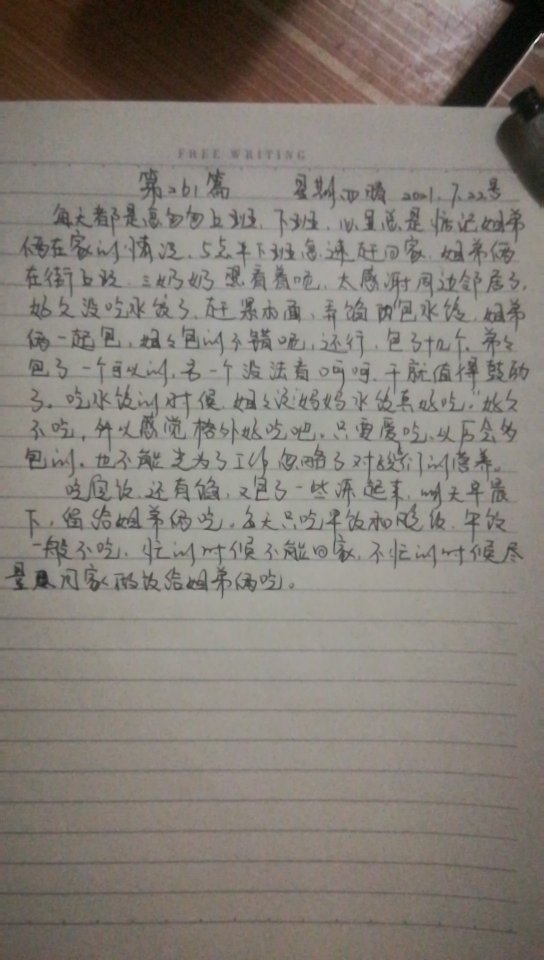 FREE WRITING
第261篇 星期四晴 2021.7.22号
每天都是急匆匆上班,下班,心里总是惦记姐弟
俩在家的情况,5点半下班急速赶回家,姐弟俩
在街上玩,三奶奶照看着呢,太感谢周边邻居了,
好久没吃水饺了,赶紧和面,弄馅包水饺,姐弟
俩一起包,姐姐包的不错呢,还行,包了十几个,弟弟
包了一个可以的,另一个没法看呵呵,干就值得鼓励
了。吃水饺的时候,姐姐说妈妈水饺真好吃,好久
不吃,所以感觉格外好吃吧,只要爱吃,以后会多
包的,也不能光为了工作忽略了对孩子们的营养。
吃完饭,还有馅,又包了一些冻起来,明天早晨
下,留给姐弟俩吃。每天只吃早饭和晚饭,午饭
一般不吃,忙的时候不能回家,不忙的时候尽
量回家做饭给姐弟俩吃。